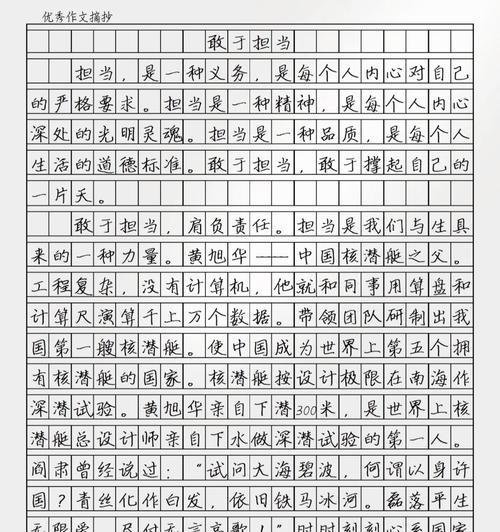 优秀作文摘抄
敢于担当
担当，是一种义务，是每个人内心对自己
的严格要求。担当是一种精神，是每个人内心
深处的光明灵魂。担当是一种品质，是每个人
生活的道德标准。敢于担当，敢于撑起自己的
一片天。
敢于担当，肩负责任。担当是我们与生具
来的一种力量。黄旭华——中国核潜艇之父。
工程复杂，没有计算机，他就和同事用算盘和
计算尺演算千上万个数据。带领团队研制出我
国第一艘核潜艇。使中国成为世界上第五个拥
有核潜艇的国家。核潜艇按设计极限在南海作
深潜试验。黄旭华亲自下潜300米，是世界上核
潜艇总设计师亲自下水做深潜试验的第一人。
阎肃曾经说过：“试问大海碧波，何谓以身许
国？青丝化作白发，依旧铁马冰河。磊落平生
无限爱，尽付无言高歌！”时时刻刻心系国家